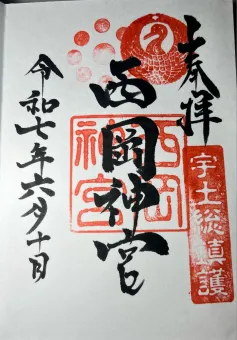 奉拝
宇土総鎮護
西岡神宮
西岡
神宮
令和七年六月十日